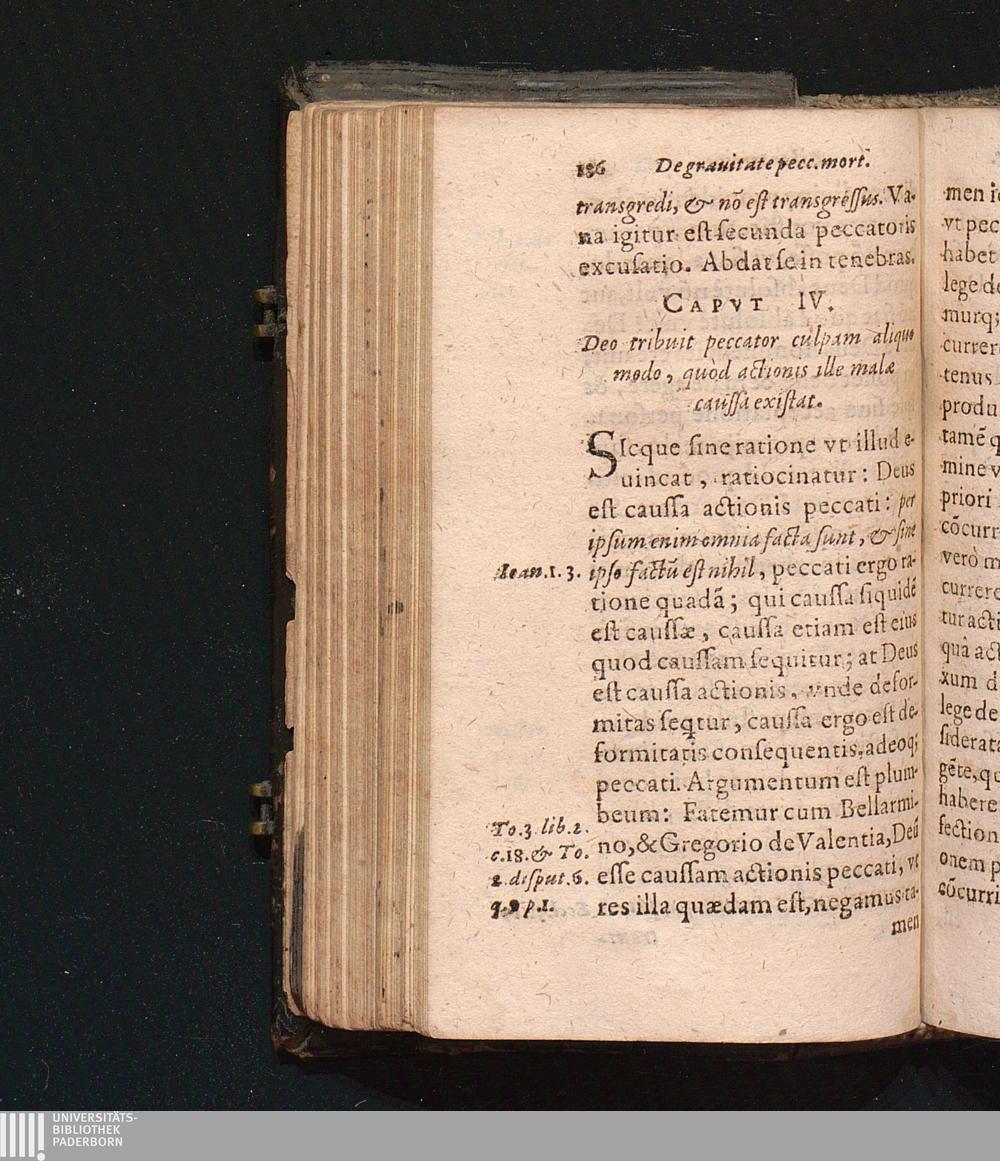 136 De grauitate pecc. mort.
transgredi, & nõ est transgressus. Va-
na igitur est secunda peccatoris
excusatio. Abdat se in tenebras.
CAPVT IV.
Deo tribuit peccator culpam aliquo
modo, quòd actionis ille malæ
caussa existat.
SIcque sine ratione vt illud e-
uincat, ratiocinatur: Deus
est caussa actionis peccati: per
ipsum enim omnia facta sunt, & sine
Ioan. 1. 3.
ipso factũ est nihil, peccati ergo ra-
tione quadã; qui caussa siquidẽ
est caussæ, caussa etiam est eius
quod caussam sequitur; at Deus
est caussa actionis, vnde defor-
mitas seqtur, caussa ergo est de-
formitatis consequentis, adeoq;
peccati. Argumentum est plum-
beum: Fatemur cum Bellarmi-
To. 3. lib. 2.
no, & Gregorio de Valentia, Deũ
c. 18. & To.
esse caussam actionis peccati, vt
2. disput. 6.
res illa quædam est, negamus ta-
q. 9 p. 1.
men
men
vt pec
habet
lege de
murq;
currere
tenus
produ
tamẽ q
mine v
priori
cõcurr
verò m
currere
tur acti
quâ act
xum d
lege de
siderata
gẽte, qu
habere
fection
onem p
cõcurri
UNIVERSITÄTS-
BIBLIOTHEK
PADERBORN